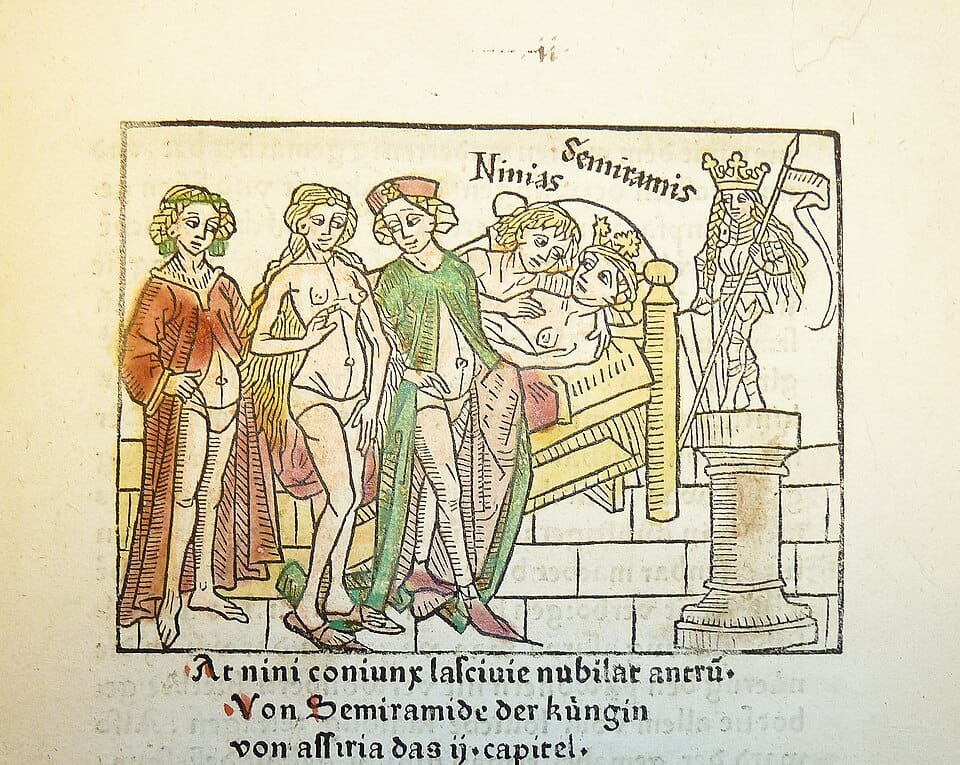 ii
Ninias Semiramis
At nini coniunx lasciuie nubilat antrū.
Von Semiramide der kúngin
von assiria das ij. capitel.